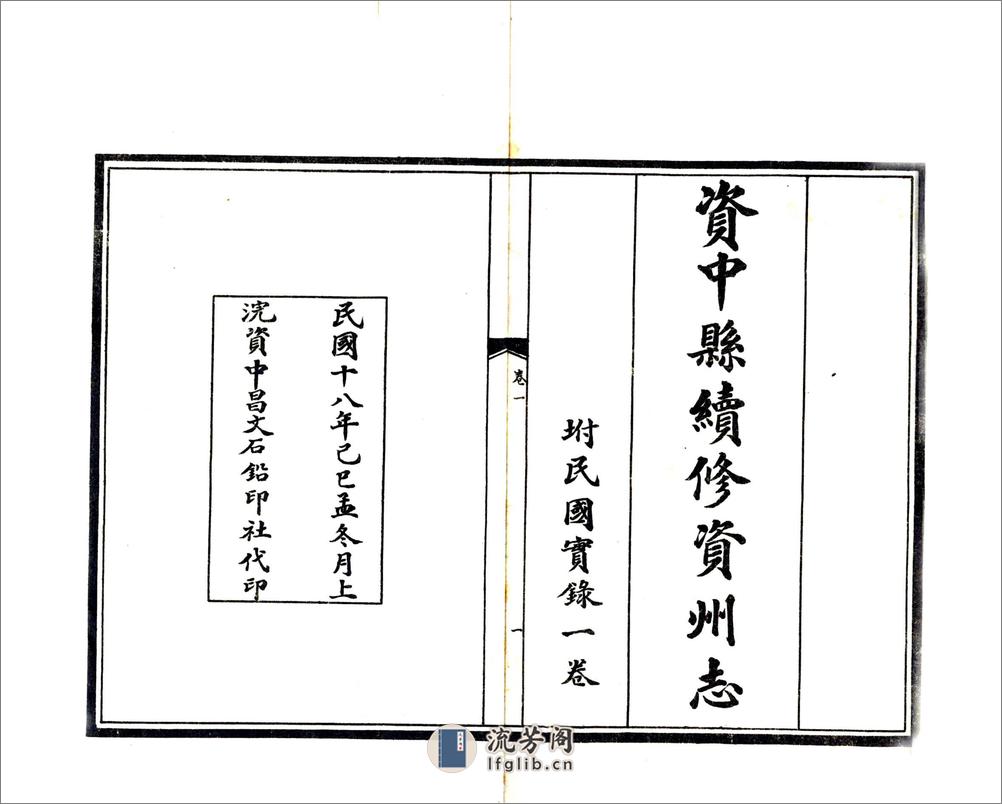 資中縣續修資州志
坿民國實錄一卷
卷一
一
民國十八年己巳孟冬月上
浣資中昌文石鉛印社代印
流芳阁
lfglib.cn